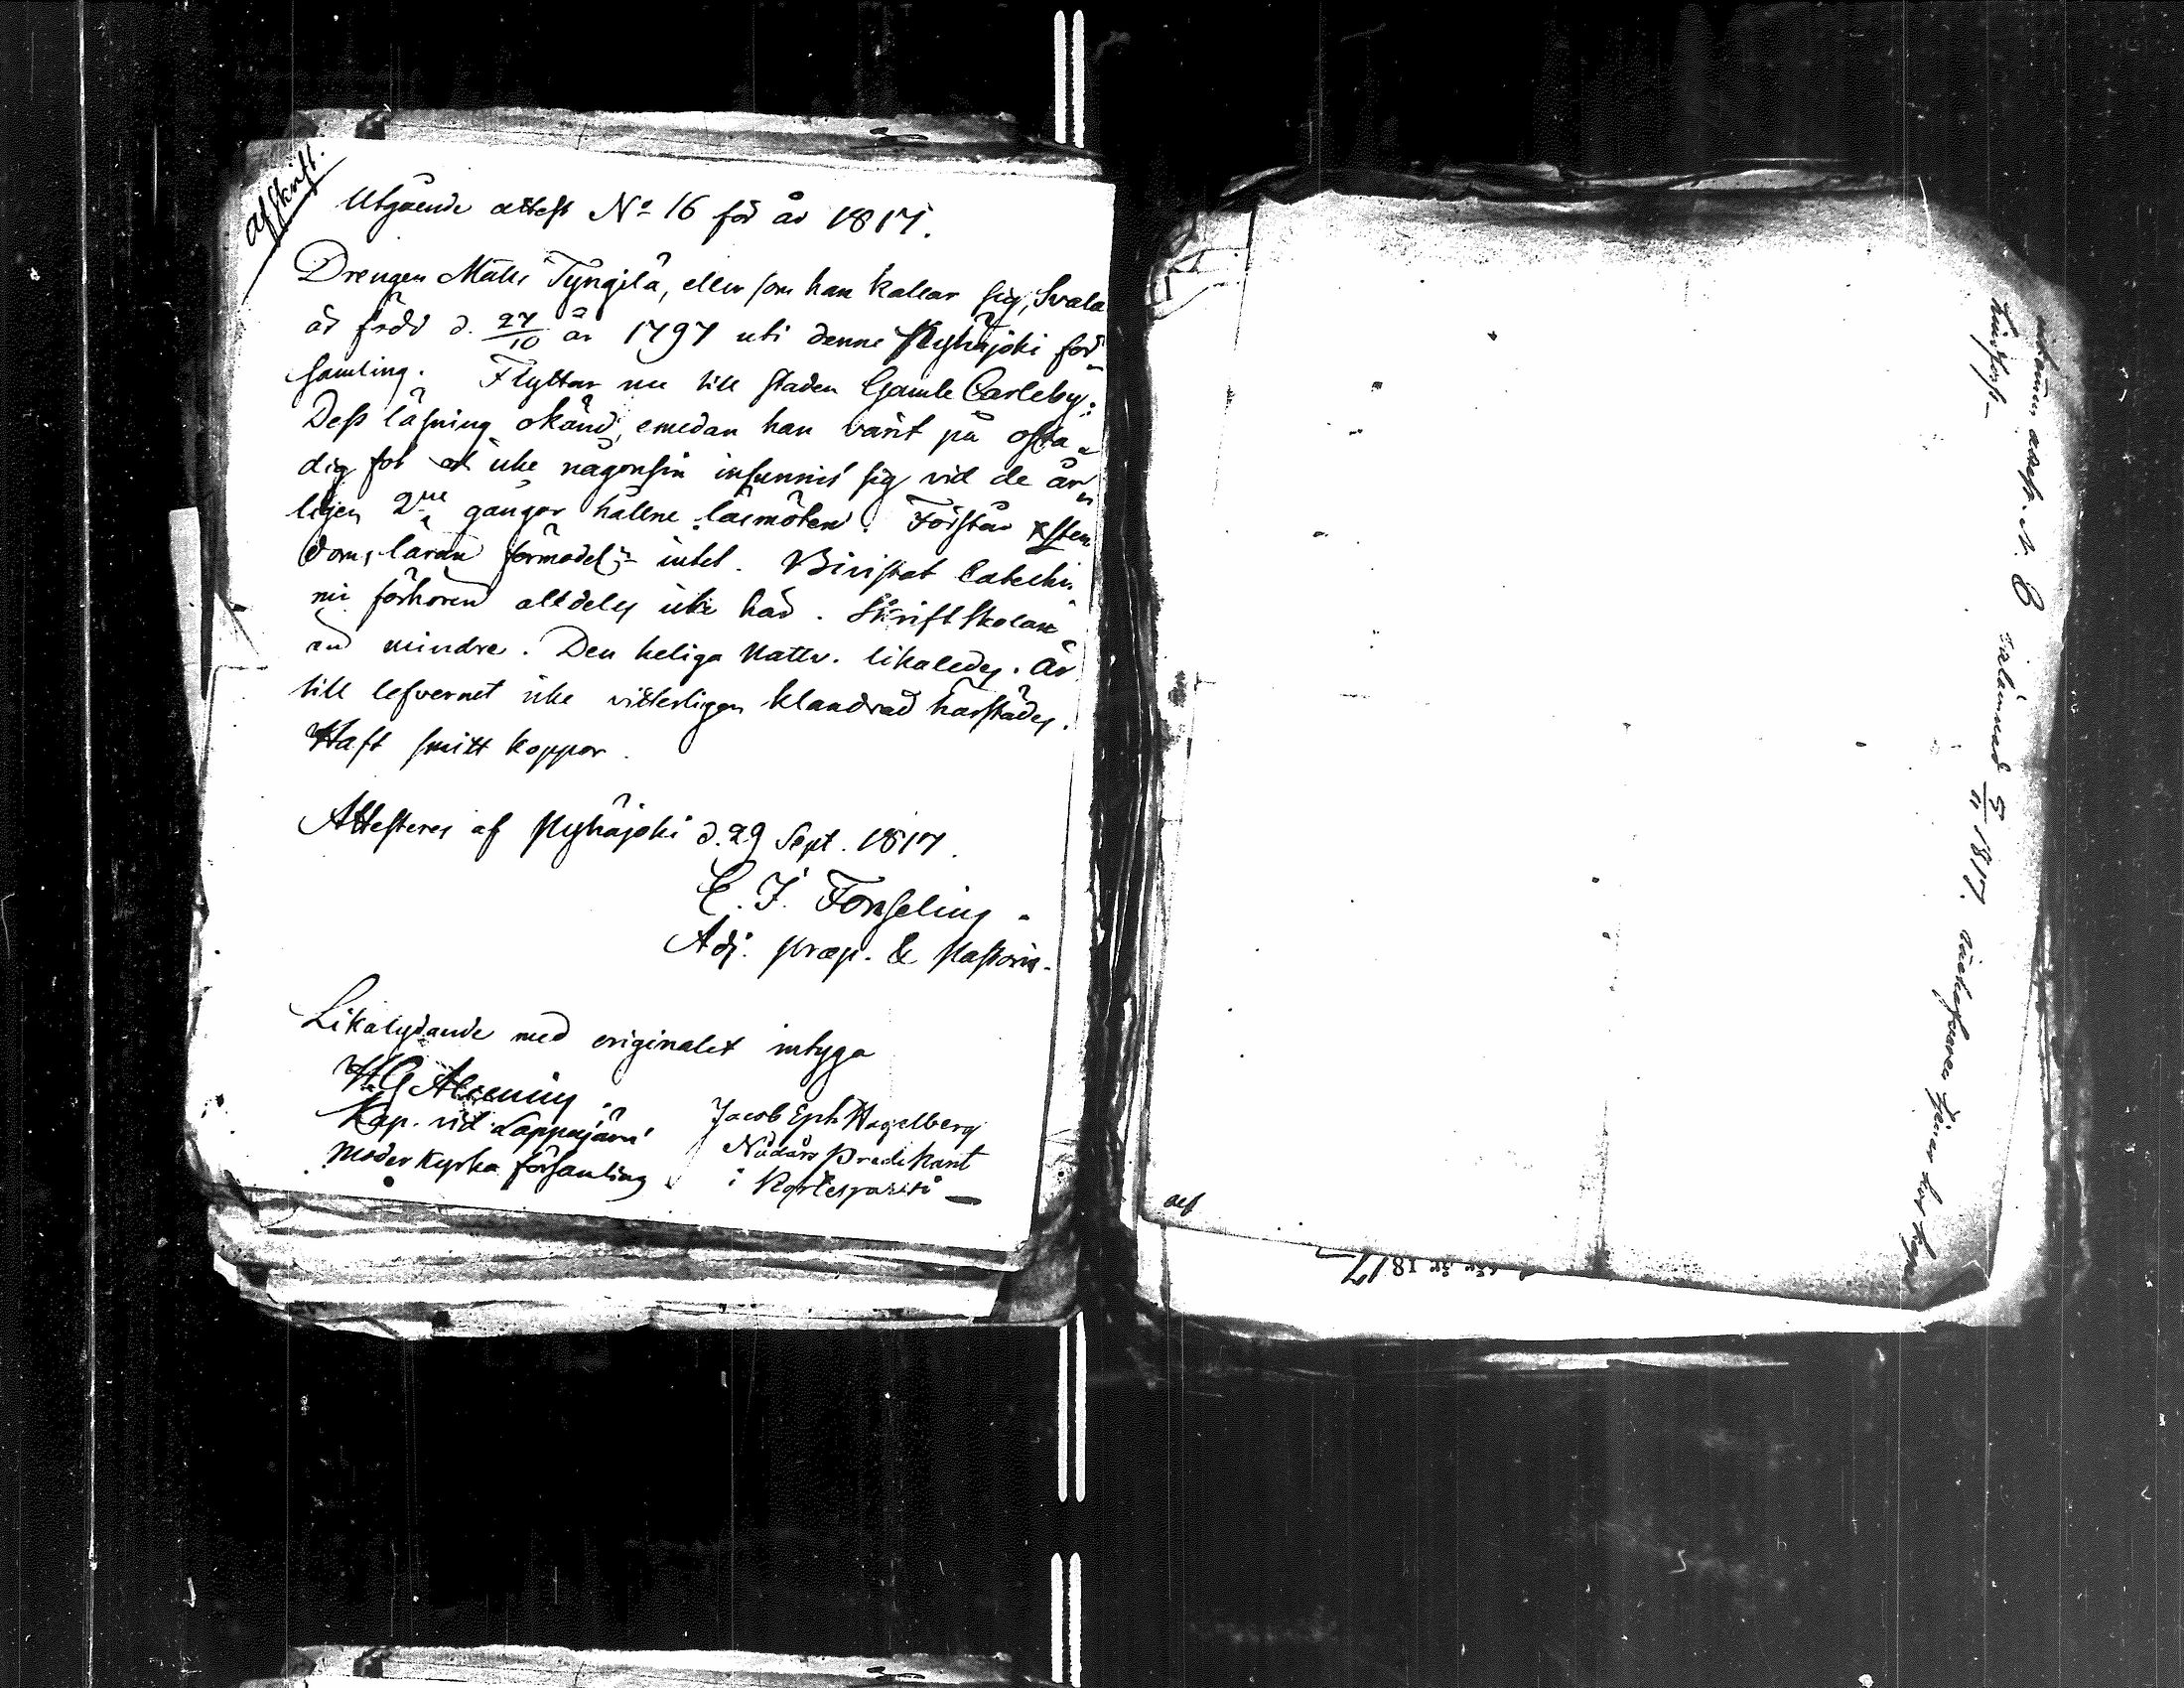 Afskrift.
Utgående attest No 16 för år 1817.
Drengen Matts Tyngilä, eller som han kallar sig, Svala
är född d. 27/10 år 1797 uti denne Pyhäjoki för-
samling. Flyttar nu till staden Gamle Carleby:
Dess läsning okänd, emedan han varit på osta-
dig fot at icke någonsin infunnit sig vid de år-
ligen 2ne gånger hållne läsmöten. Förstår xsten-
doms läran förmodel:n intet. Bivistat Catechi-
mi förhören alldeles icke här. Skriftskolan
än mindre. Den heliga Nattv. likaledes. Är
till lefvernet icke vitterligen klandrad härstädes.
Haft smitt koppor.
Attesteres af Pyhäjoki d. 29 Sept. 1817.
C. J. Fonseling
Adj. præp. & Pastoris.
Likalydande med originalet intyga
Kap. vid Lappajärvi
Moderkyrka församling
Jacob Eph Hagelberg
Nådårs Predikant
i Kortesjärvi
attest. N. 6
5/11 1817.
för år 1817